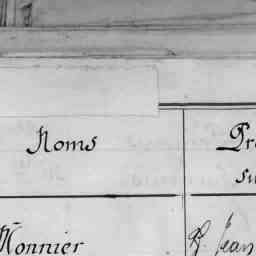 Noms
Pr
su
Monnier
Jean